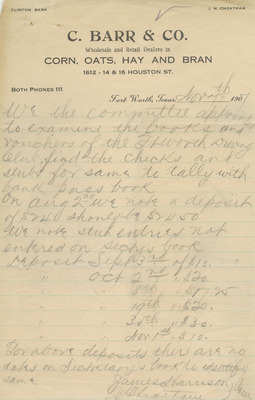 CLINTON BARR
J. R. CHEATHAM
C. BARR & CO.
Wholesale and Retail Dealers in
CORN, OATS, HAY AND BRAN
1612 - 14 & 16 HOUSTON ST.
BOTH PHONES 111
Fort Worth, Texas, Nov 190
We the committee
to examine the books and
vouchers of the Ft Worth Driving
Club find the checks and
stubs for same to tally with
bank pass book
On Aug we note a deposit
of should be $24.50
We note stub entries not
entered on Sectys book
Deposit Sept 3rd of $10.
" Oct 2nd " $20
" " $17.25
" " $20.
" " $30.
" Nov 1st " $10.
For above deposits there are no
dates on Secretarys book to
same
James Harrison